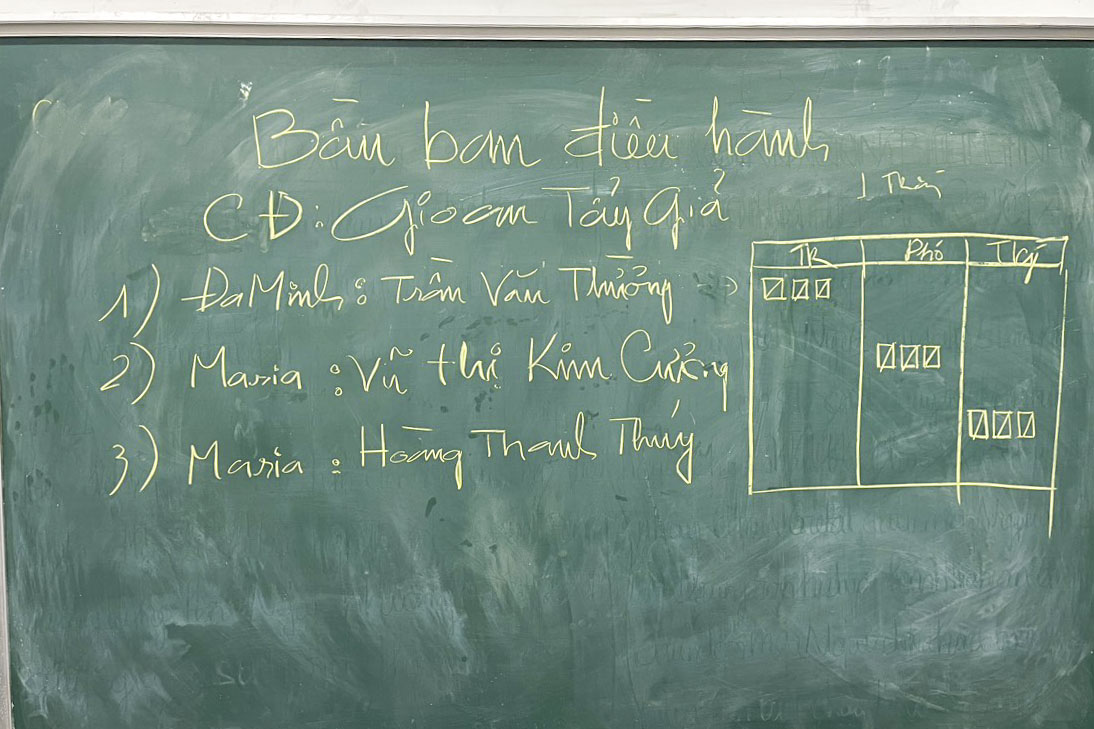 Bầu ban điều hành
CĐ: Gioan Tẩy Giả
1) ĐaMinh: Trần Văn Thưởng →
2) Maria: Vũ thị Kim Cương
3) Maria: Hoàng Thanh Thúy
TR Phó Thý